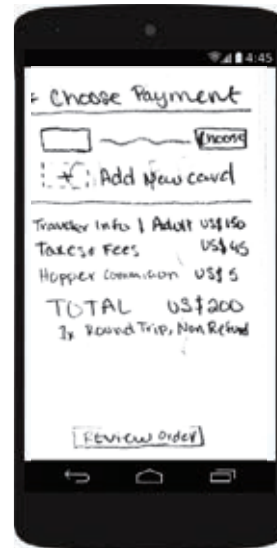 4:45
Choose Payment
Choose
Add New card
Traveler Info 1 Adult US$150
Taxes + Fees US$45
Hopper Commition US$5
TOTAL US$200
1x Round Trip, Non Refund
Review Order